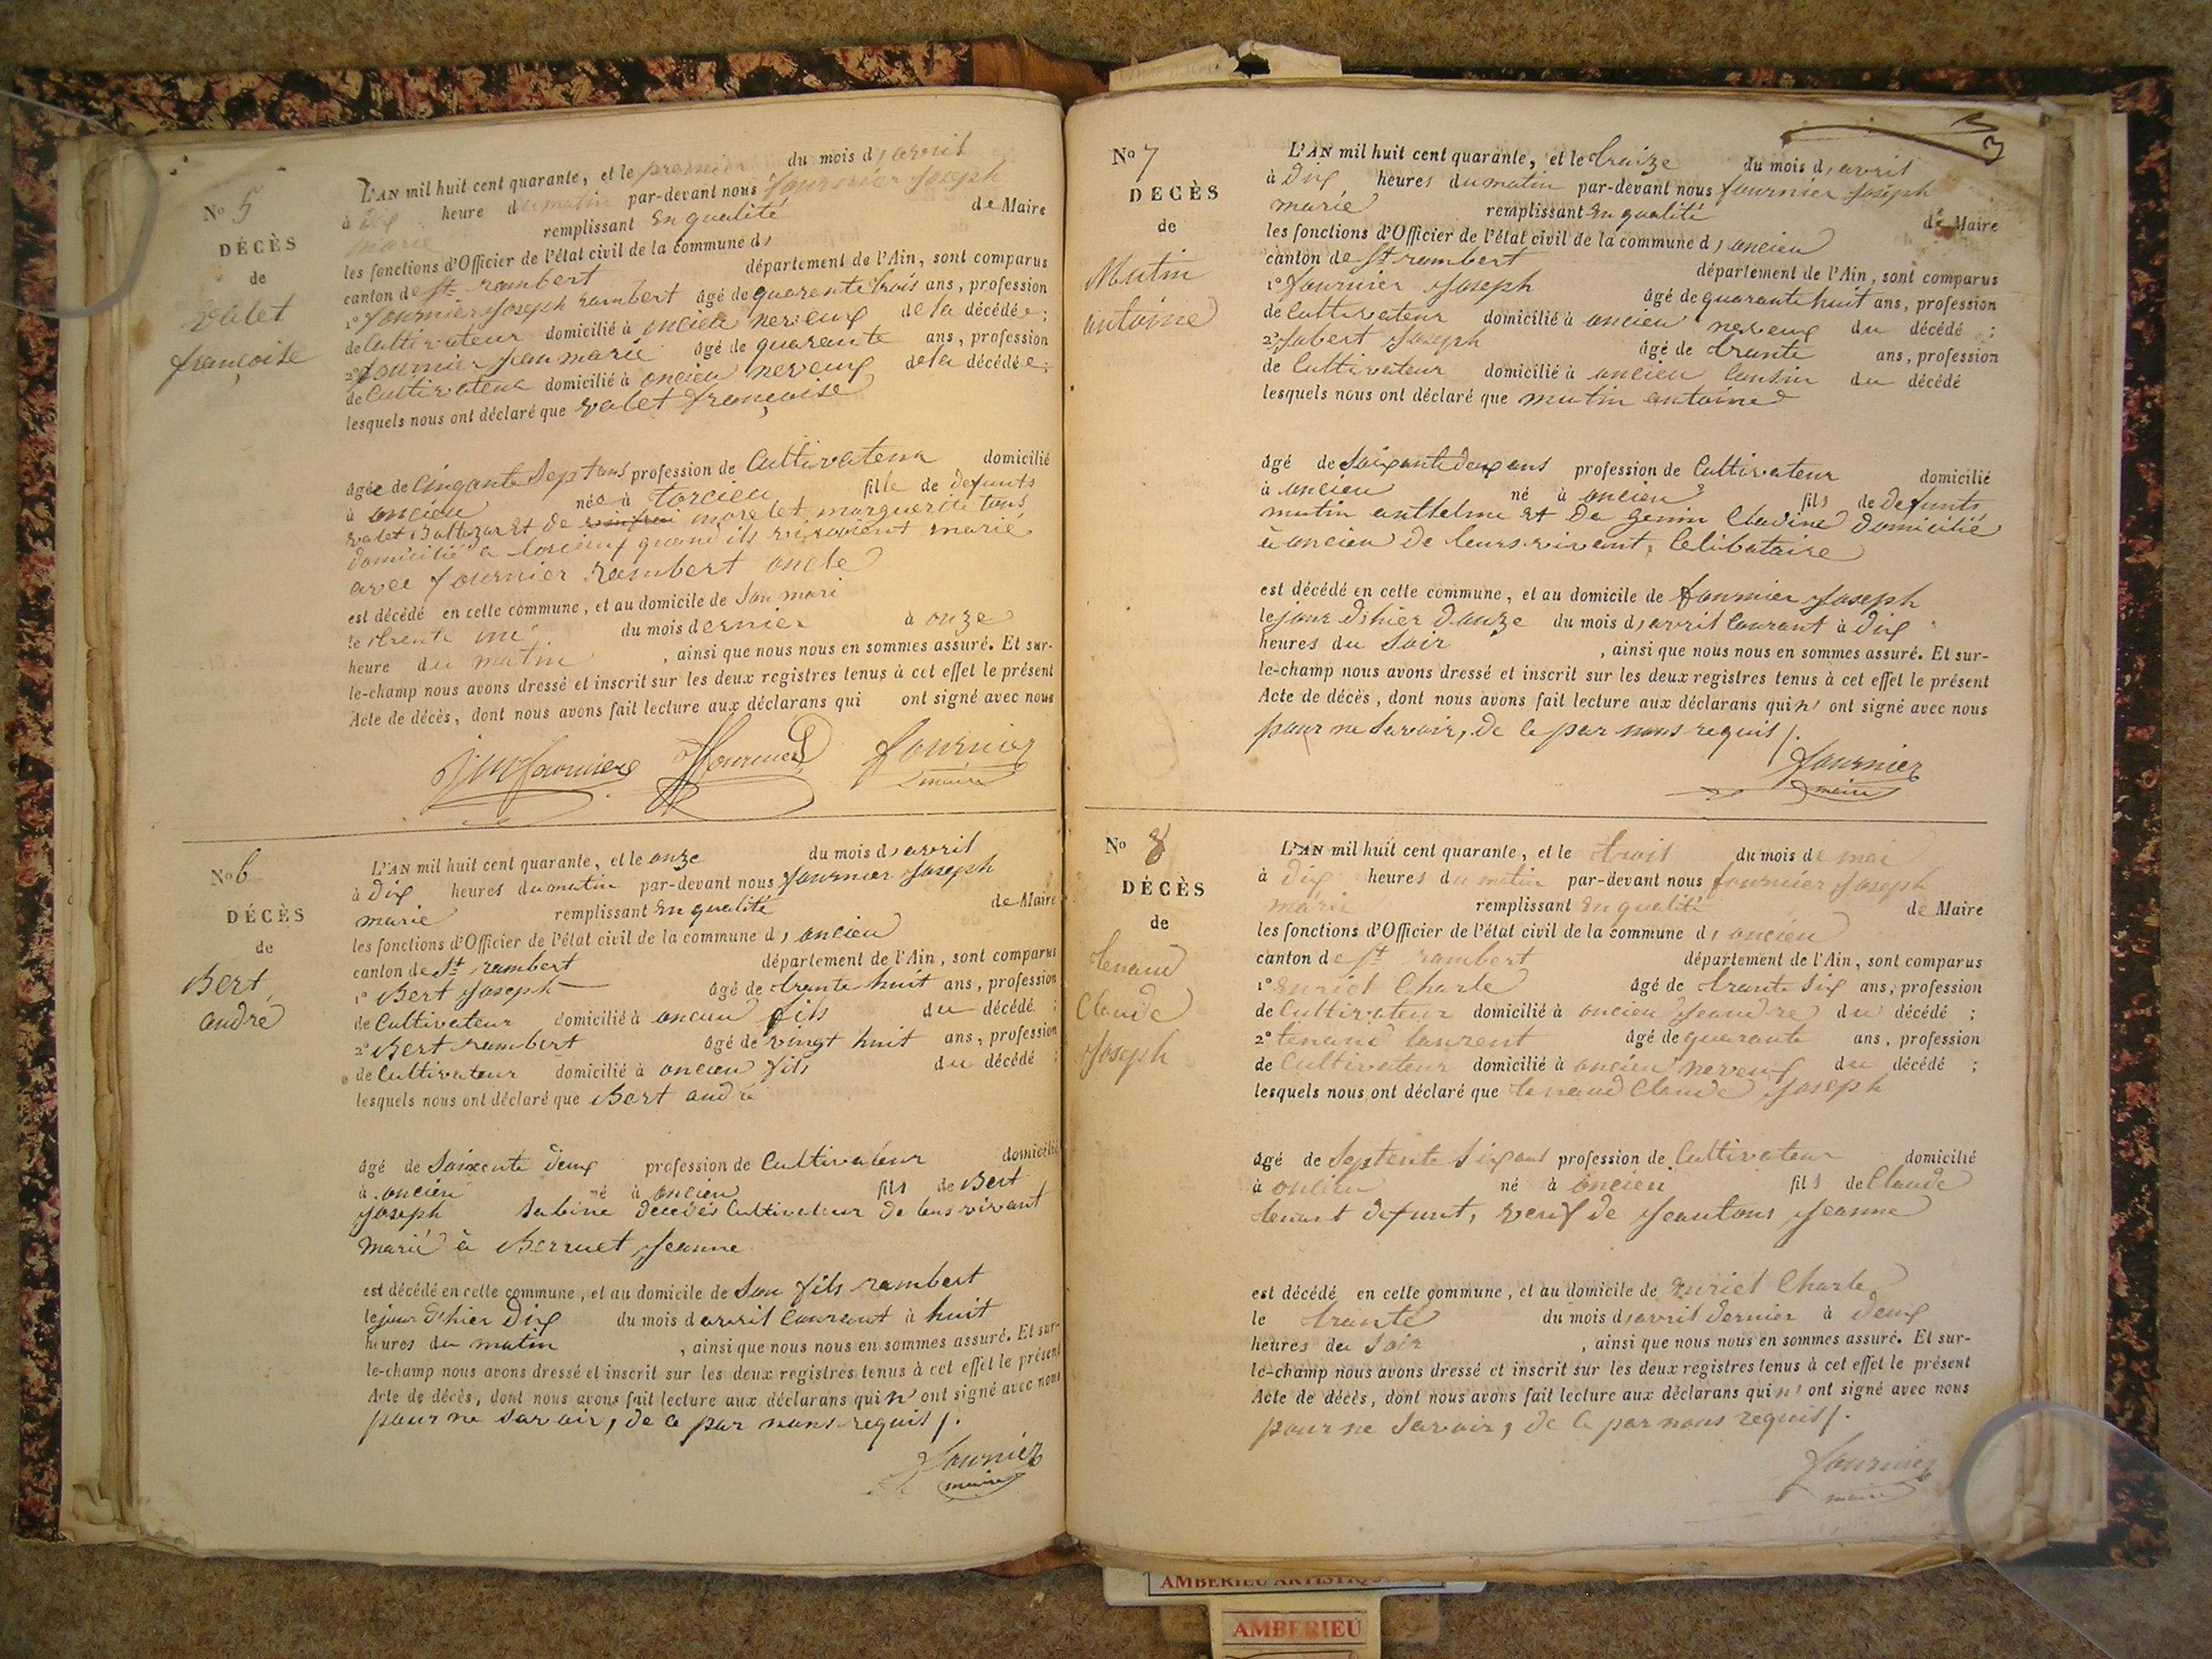 No 5
DÉCÈS
de
valet
françoise
L'AN mil huit cent quarante, et le premier du mois d, avril
à dix heure du matin par-devant nous fournier Joseph
marie remplissant En qualité de Maire
les fonctions d'Officier de l'état civil de la commune d,
canton de St rambert département de l'Ain, sont comparus
1° fournier Joseph rambert âgé de quarente trois ans, profession
de Cultivateur domicilié à oncieu neveux de la décédée;
2° fournier jean marie âgé de quarante ans, profession
de Cultivateur domicilié à oncieu neveux de la décédée;
lesquels nous ont déclaré que valet françoise
âgée de Cinqante Sept ans profession de Cultivateur domicilié
à oncieu née à torcieu fille de defunts
valet Baltazar Et de morelet marguerite tous
domicilié a quand ils vivoient marié
avec fournier Rambert oncle
est décédé en cette commune, et au domicile de Son mari
le trente un du mois dernier à onze
heure du matin, ainsi que nous nous en sommes assuré. Et sur-
le-champ nous avons dressé et inscrit sur les deux registres tenus à cet effet le présent
Acte de décès, dont nous avons fait lecture aux déclarans qui ont signé avec nous
fournier
maire
No 6
DÉCÈS
de
Bert
andré
L'AN mil huit cent quarante, et le onze du mois d, avril
à Dix heures du matin par-devant nous fournier Joseph
marie remplissant En qualité de Maire
les fonctions d'Officier de l'état civil de la commune d, oncieu
canton de St rambert département de l'Ain, sont comparus
1° Bert Joseph âgé de trante huit ans, profession
de Cultivateur domicilié à oncieu fils du décédé;
2° Bert rambert âgé de vingt huit ans, profession
de Cultivateur domicilié à oncieu fils du décédé;
lesquels nous ont déclaré que Bert andré
âgé de Soixente deux profession de Cultivateur domicilié
à oncieu né à oncieu fils de Bert
Joseph Sabine decedés Cultivateur de leus vivant
Marié à Berruet Jeanne
est décédé en cette commune, et au domicile de Son fils rambert
le jour d'hier Dix du mois d avril Courant à huit
heures du matin, ainsi que nous nous en sommes assuré. Et sur-
le-champ nous avons dressé et inscrit sur les deux registres tenus à cet effet le présent
Acte de décès, dont nous avons fait lecture aux déclarans qui n' ont signé avec nous
pour ne Savoir, de Ce par nous requis /.
Fournier
maire
No 7
DÉCÈS
de
Mutin
antoine
L'AN mil huit cent quarante, et le traize du mois d, avril
à Dix heures du matin par-devant nous fournier Joseph
marie remplissant En qualité de Maire
les fonctions d'Officier de l'état civil de la commune d, oncieu
canton de St rambert département de l'Ain, sont comparus
1° fournier Joseph âgé de quarante huit ans, profession
de Cultivateur domicilié à oncieu neveux du décédé;
2° Jabert Joseph âgé de trante ans, profession
de Cultivateur domicilié à oncieu Cousin du décédé
lesquels nous ont déclaré que mutin antoine
âgé de Soixante deux ans profession de Cultivateur domicilié
à oncieu né à oncieu fils de defunts
mutin anthelme Et De genin Clavine domicilié
à oncieu de leurs vivant, Celibataire
est décédé en cette commune, et au domicile de fournier Joseph
le jour d'hier Douze du mois d, avril Courant à dix
heures du Soir, ainsi que nous nous en sommes assuré. Et sur-
le-champ nous avons dressé et inscrit sur les deux registres tenus à cet effet le présent
Acte de décès, dont nous avons fait lecture aux déclarans qui n' ont signé avec nous
pour ne Savoir, de Ce par nous requis /.
fournier
maire
No 8
DÉCÈS
de
tenand
Claude
Joseph
L'AN mil huit cent quarante, et le trois du mois de mai
à Dix heures du matin par-devant nous fournier Joseph
marie remplissant En qualité de Maire
les fonctions d'Officier de l'état civil de la commune d, oncieu
canton de St rambert département de l'Ain, sont comparus
1° Curiel Charle âgé de trante Six ans, profession
de Cultivateur domicilié à oncieu Jeandre du décédé;
2° tenand laurent âgé de quarante ans, profession
de Cultivateur domicilié à oncieu neveux du décédé;
lesquels nous ont déclaré que tenand Claude Joseph
âgé de Septente Six ans profession de Cultivateur domicilié
à oncieu né à oncieu fils de Claude
tenant defunt, veuf de Jeantons Jeanne
est décédé en cette commune, et au domicile de Curiel Charle
le trante du mois d, avril dernier à deux
heures du Soir, ainsi que nous nous en sommes assuré. Et sur-
le-champ nous avons dressé et inscrit sur les deux registres tenus à cet effet le présent
Acte de décès, dont nous avons fait lecture aux déclarans qui n' ont signé avec nous
pour ne Savoir, de Ce par nous requis /.
fournier
maire
AMBERIEU ARTISTIQ
AMBERIEU